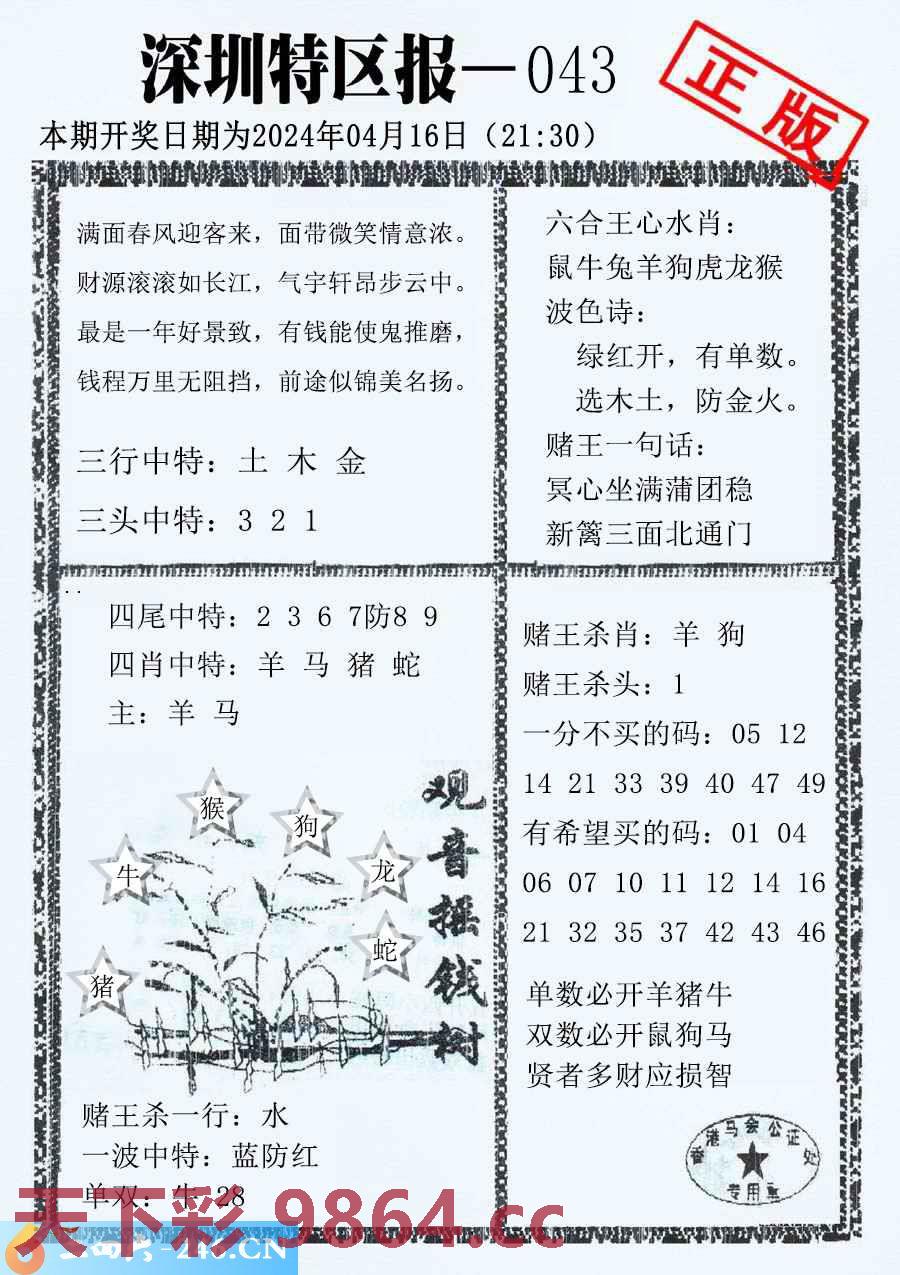 深圳特区报—043
正版
本期开奖日期为2024年04月16日（21:30）
满面春风迎客来，面带微笑情意浓。
财源滚滚如长江，气宇轩昂步云中。
最是一年好景致，有钱能使鬼推磨，
钱程万里无阻挡，前途似锦美名扬。
三行中特：土 木 金
三头中特：3 2 1
六合王心水肖：
鼠牛兔羊狗虎龙猴
波色诗：
绿红开，有单数。
选木土，防金火。
赌王一句话：
冥心坐满蒲团稳
新篱三面北通门
四尾中特：2 3 6 7防8 9
四肖中特：羊 马 猪 蛇
主：羊 马
猴
狗
牛
龙
蛇
猪
观音摇钱树
赌王杀一行：水
一波中特：蓝防红
单双：牛 28
赌王杀肖：羊 狗
赌王杀头：1
一分不买的码：05 12
14 21 33 39 40 47 49
有希望买的码：01 04
06 07 10 11 12 14 16
21 32 35 37 42 43 46
单数必开羊猪牛
双数必开鼠狗马
贤者多财应损智
香港马会公证处
专用章
天下彩.9864.cc